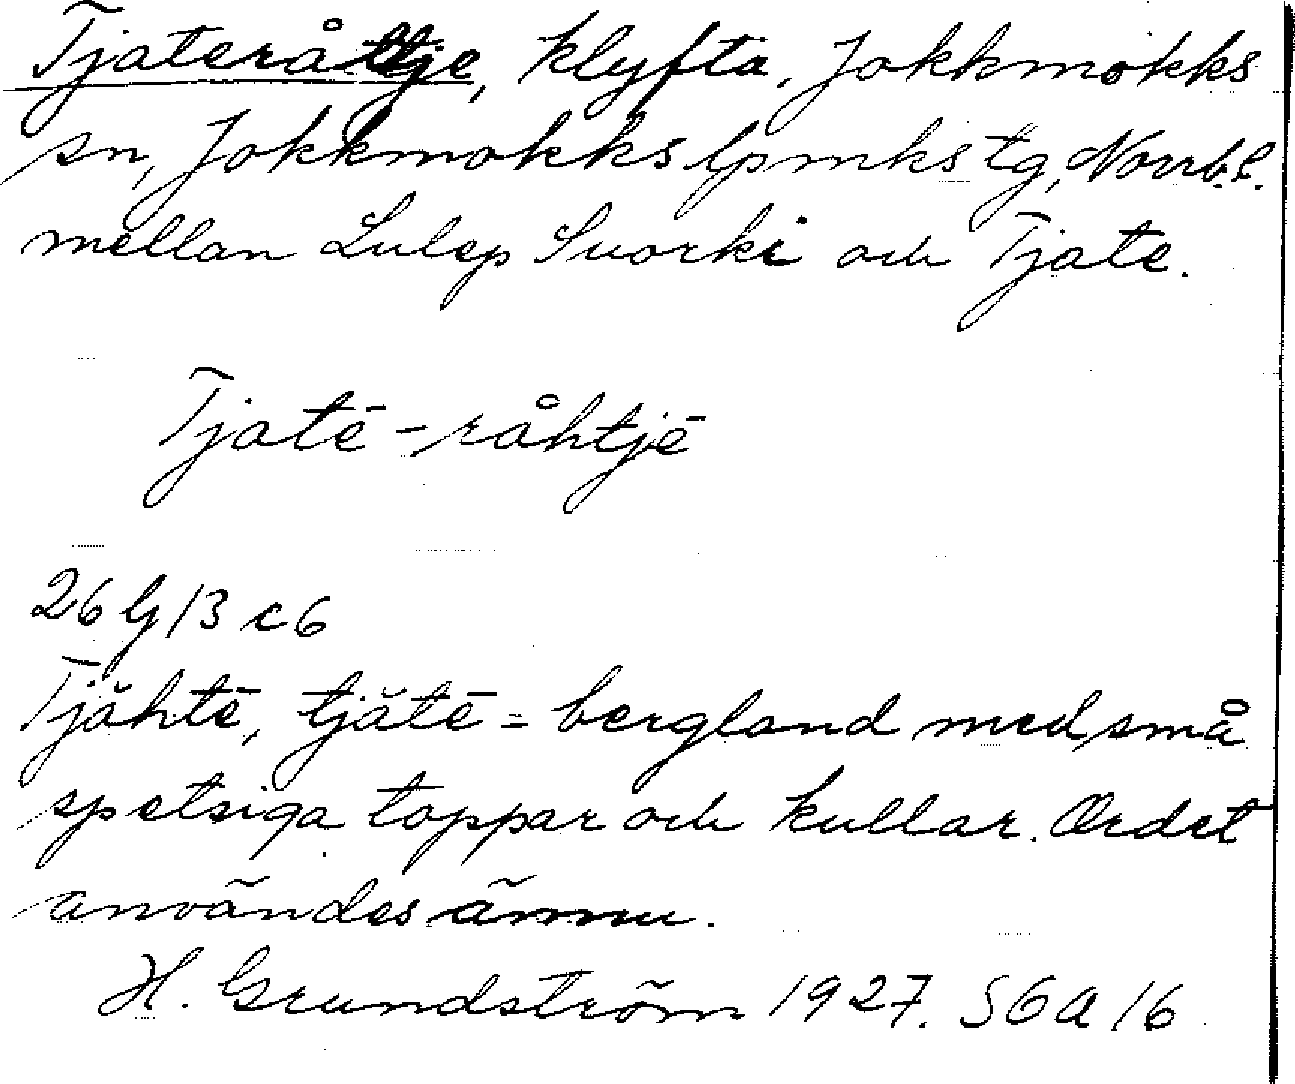 Tjateråttje, klyfta, Jokkmokks
sn, Jokkmokks lpmks tg, Norrb. l.
mellan Lulep Suorki och Tjate.
Tjatē-råhtjē
26 G 13 c 6
Tjăhtē, tjătē = bergland med små
spetsiga toppar och kullar. Ordet
användes ännu.
H. Grundström 1927. SGA 16